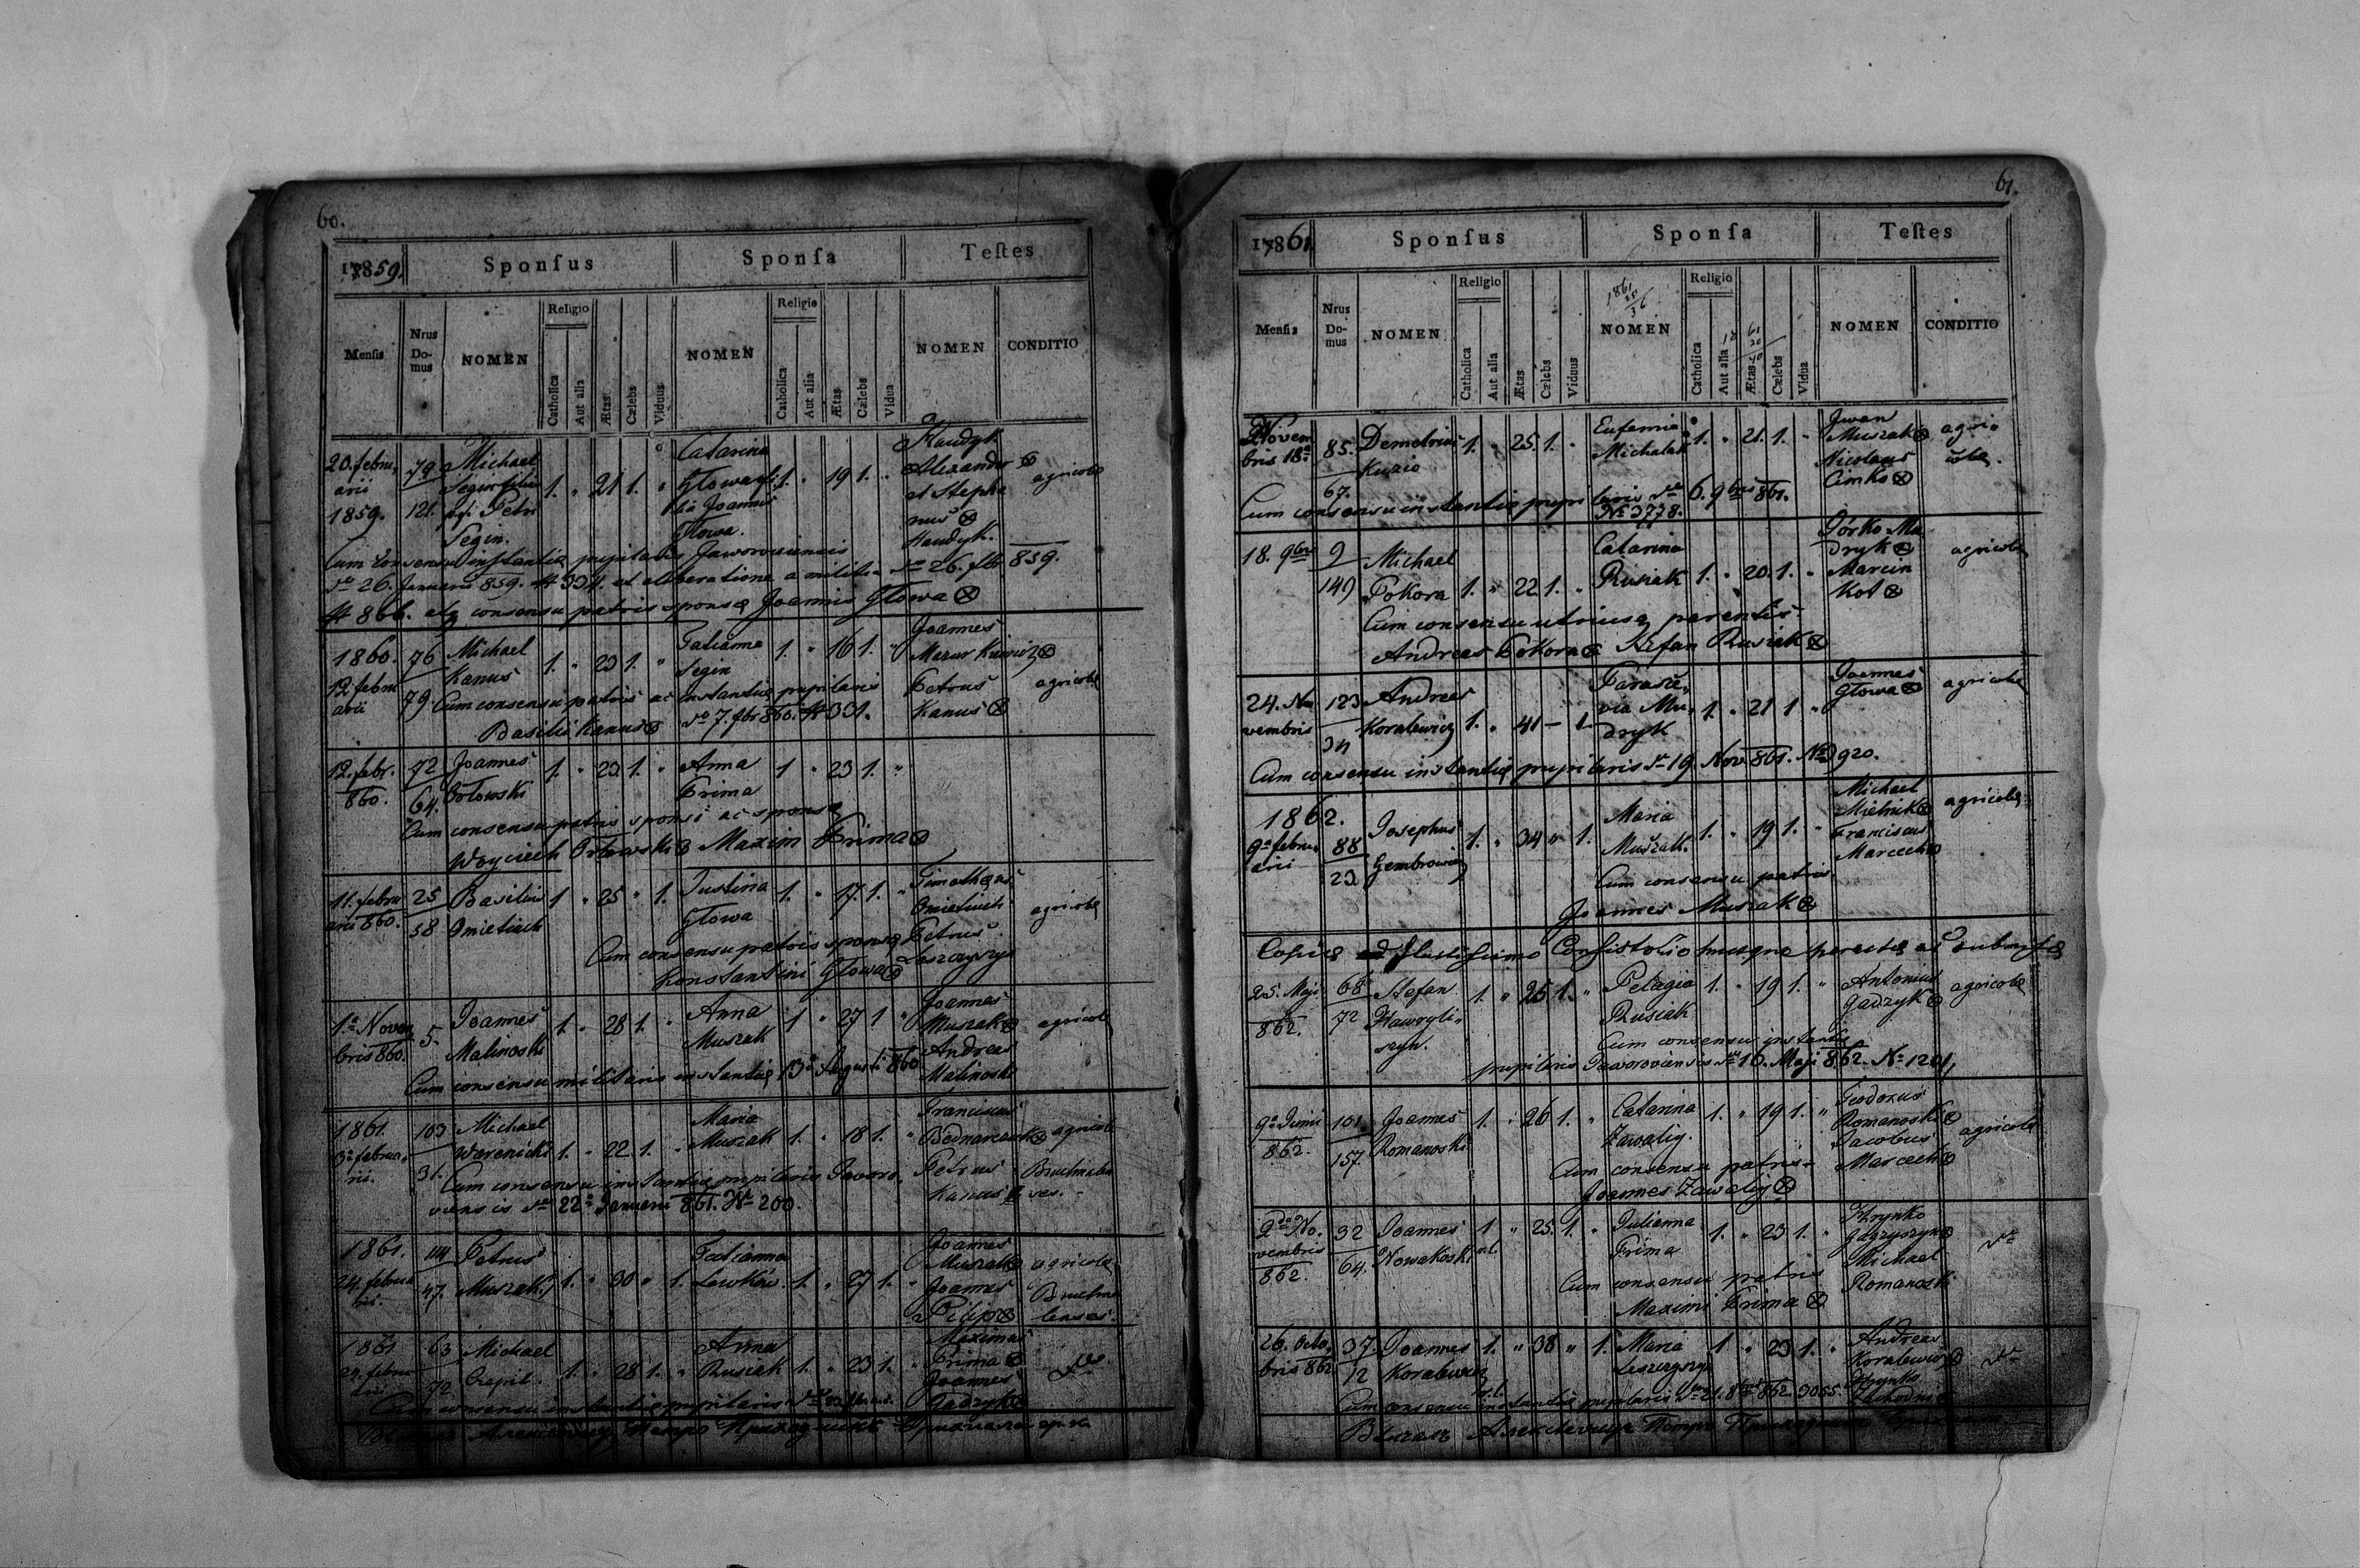 60.
1859.
Sponſus
Sponſa
Teſtes
Menſis
Nrus Domus
NOMEN
Religio
Catholica
Aut alia
Ætas
Cælebs
Viduus
NOMEN
Religio
Catholica
Aut alia
Ætas
Cælebs
Vidua
NOMEN
CONDITIO
20. febru
arii
1859.
79
121.
Michael
Segin filius
Petri
Segin.
1. " 21 1. "
Catarina
Głowa fi
lia Joannis
Głowa.
1. " 19 1. "
Haudyk
Alexander
et Stepha
nus
Haudyk.
agricolæ
Cum consensu instantiæ pupilaris Jaworoviensis
dto 26. Januarii 859. # 334. et deliberatione a militia dto 26. fbr 859.
# 866. atq consensu patris sponsæ Joannis Głowa
1860.
12. febru
arii
76
79
Michael
Kanus
1. " 23 1. "
Tatianna
Segin
1. " 16 1. "
Joannes
Mazurkiewicz
Petrus
Kanus
agricolæ
Cum consensu patris ac instantiæ pupilaris
Basilii Kanus dto 7. fbr 860. # 331.
12. febr.
860.
72
64.
Joannes
Orłowski
1. " 23 1. "
Anna
Prima
1 " 23 1. "
Cum consensu patris sponsi ac sponsæ
Woyciech Orłowski Maxim Prima
11. febru
arii 860.
25
58
Basilius
Dmietruch
1 " 25 " 1.
Justina
Głowa
1. " 17. 1. "
Timotheus
Petrus
Leszczyszyn
agricolæ
Cum consensu patris sponsæ
Konstantini Głowa
1a Novem
bris 860.
5.
Joannes
Malinoski
1. " 28 1. "
Anna
Muszak
1 " 27 1 "
Joannes
Muszak
Andreas
Malinoski
agricolæ
Cum consensu militaris instantiæ 13a Augusti 860
1861.
3a februa
rii.
103
31.
Michael
Warenicki
1. " 22 1. "
Maria
Muszak
1. " 18 1. "
Franciscus
Bednarczuk
Petrus
Kanus
agricolæ
Cum consensu instantiæ pupilaris Javoro
viensis dto 22a Januarii 861. No 200.
1861.
24. februa
rii.
114
47.
Petrus
Muszak
1. " 30 " 1.
Tatianna
Lewków.
1. " 27 1. "
Joannes
Muszak
Joannes
Pilip
agricolæ
1861
24. februa
rii
63
72
Michael
1. " 28 1. "
Anna
Rusiak
1. " 23 1. "
Maximus
Prima
Joannes
Gadzyk
dto
Cum consensu instantiæ pupilaris
61.
1861.
Sponſus
Sponſa
Teſtes
Menſis
Nrus Domus
NOMEN
Religio
Catholica
Aut alia
Ætas
Cælebs
Viduus
1861
NOMEN
Religio
Catholica
Aut alia
Ætas
Cælebs
Vidua
NOMEN
CONDITIO
Novem
bris 18a
85.
67.
Demetrius
Kuzio
1. " 25 1. "
Eufemia
Michalak
1. " 21. 1. "
Iwan
Muszak
Nicolaus
Cimko
agri
colæ.
Cum consensu instantiæ pupilaris dto 6. 9bris 861.
No 3778.
18. 9bris
9
149
Michael
Pokora
1. " 22 1. "
Catarina
Rusiak
1. " 20. 1. "
Jórko Mu
dryk
Marcin
Kot
agricolæ
Cum consensu utriusq parentis.
Andreas Pokora Stefan Rusiak
24. No
vembris
123
34
Andreas
Koralewicz
1. " 41 — 1.
Parasce
via Mu
dryk
1. " 21 1 "
Joannes
Głowa
agricolæ
Cum consensu instantiæ pupilaris dto 19 Nov. 861. No 3920.
1862.
9a febru
arii
88
23
Josephus
Gembrowicz
1. " 34 " 1.
Maria
Muszak.
1. " 19 1. "
Michael
Mielnik
Franciscus
Marcech
agricolæ
Cum consensu patris
Joannes Muszak
25. Maji
862.
68
72
Stefan
Hawryli
szyn.
1. " 25 1. "
Pelagia
Rusiak
1. " 19 1. "
Antonius
Gadzyk
agricolæ
Cum consensu instantiæ
pupilaris Jaworoviensis dto 10. Maji 862. No 1201,
9a Junii
862.
101.
157.
Joannes
Romanoski
1. " 26 1. "
Catarina
Zawaliy.
1. " 19 1. "
Teodorus
Romanoski
Jacobus
Marcech
agricolæ
Cum consensu patris
Joannes Zawaliy
No
vembris
862.
32
64.
Joannes
Nowakoski
1 " 25. 1. "
Julianna
Prima
1. " 23 1. "
Hrynko
Michael
Romanoski
dto
Cum consensu patris
Maximi Prima
26. Octo
bris 862
37.
12
Joannes
Koralewicz
1. " 38 " 1.
Maria
Leszczyszyn
1 " 23 1. "
Andreas
Koralewicz
Hrynko
dto
Cum consensu instantiæ pupilaris dto 21. 8bris 862 3055.